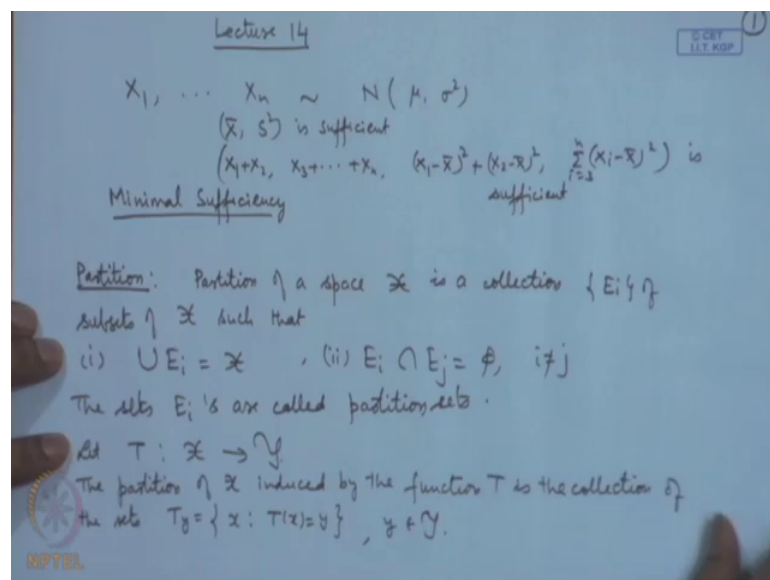 Lecture 14
1
© CET
I.I.T. KGP
X₁, ... Xₙ ~ N(μ, σ²)
(X̄, S²) is sufficient
(X₁+X₂, X₃+⋯+Xₙ, (X₁-X̄)²+(X₂-X̄)², Σᵢ₌₃ⁿ(Xᵢ-X̄)²) is
sufficient
Minimal Sufficiency
Partition: Partition of a space 𝒳 is a collection {Eᵢ} of
subsets of 𝒳 such that
(i) ∪Eᵢ = 𝒳, (ii) Eᵢ ∩ Eⱼ = φ, i≠j
The sets Eᵢ's are called partition sets.
Let T : 𝒳 → 𝒴
The partition of 𝒳 induced by the function T is the collection of
the sets T_y = {x : T(x)=y}, y ∈ 𝒴.
NPTEL